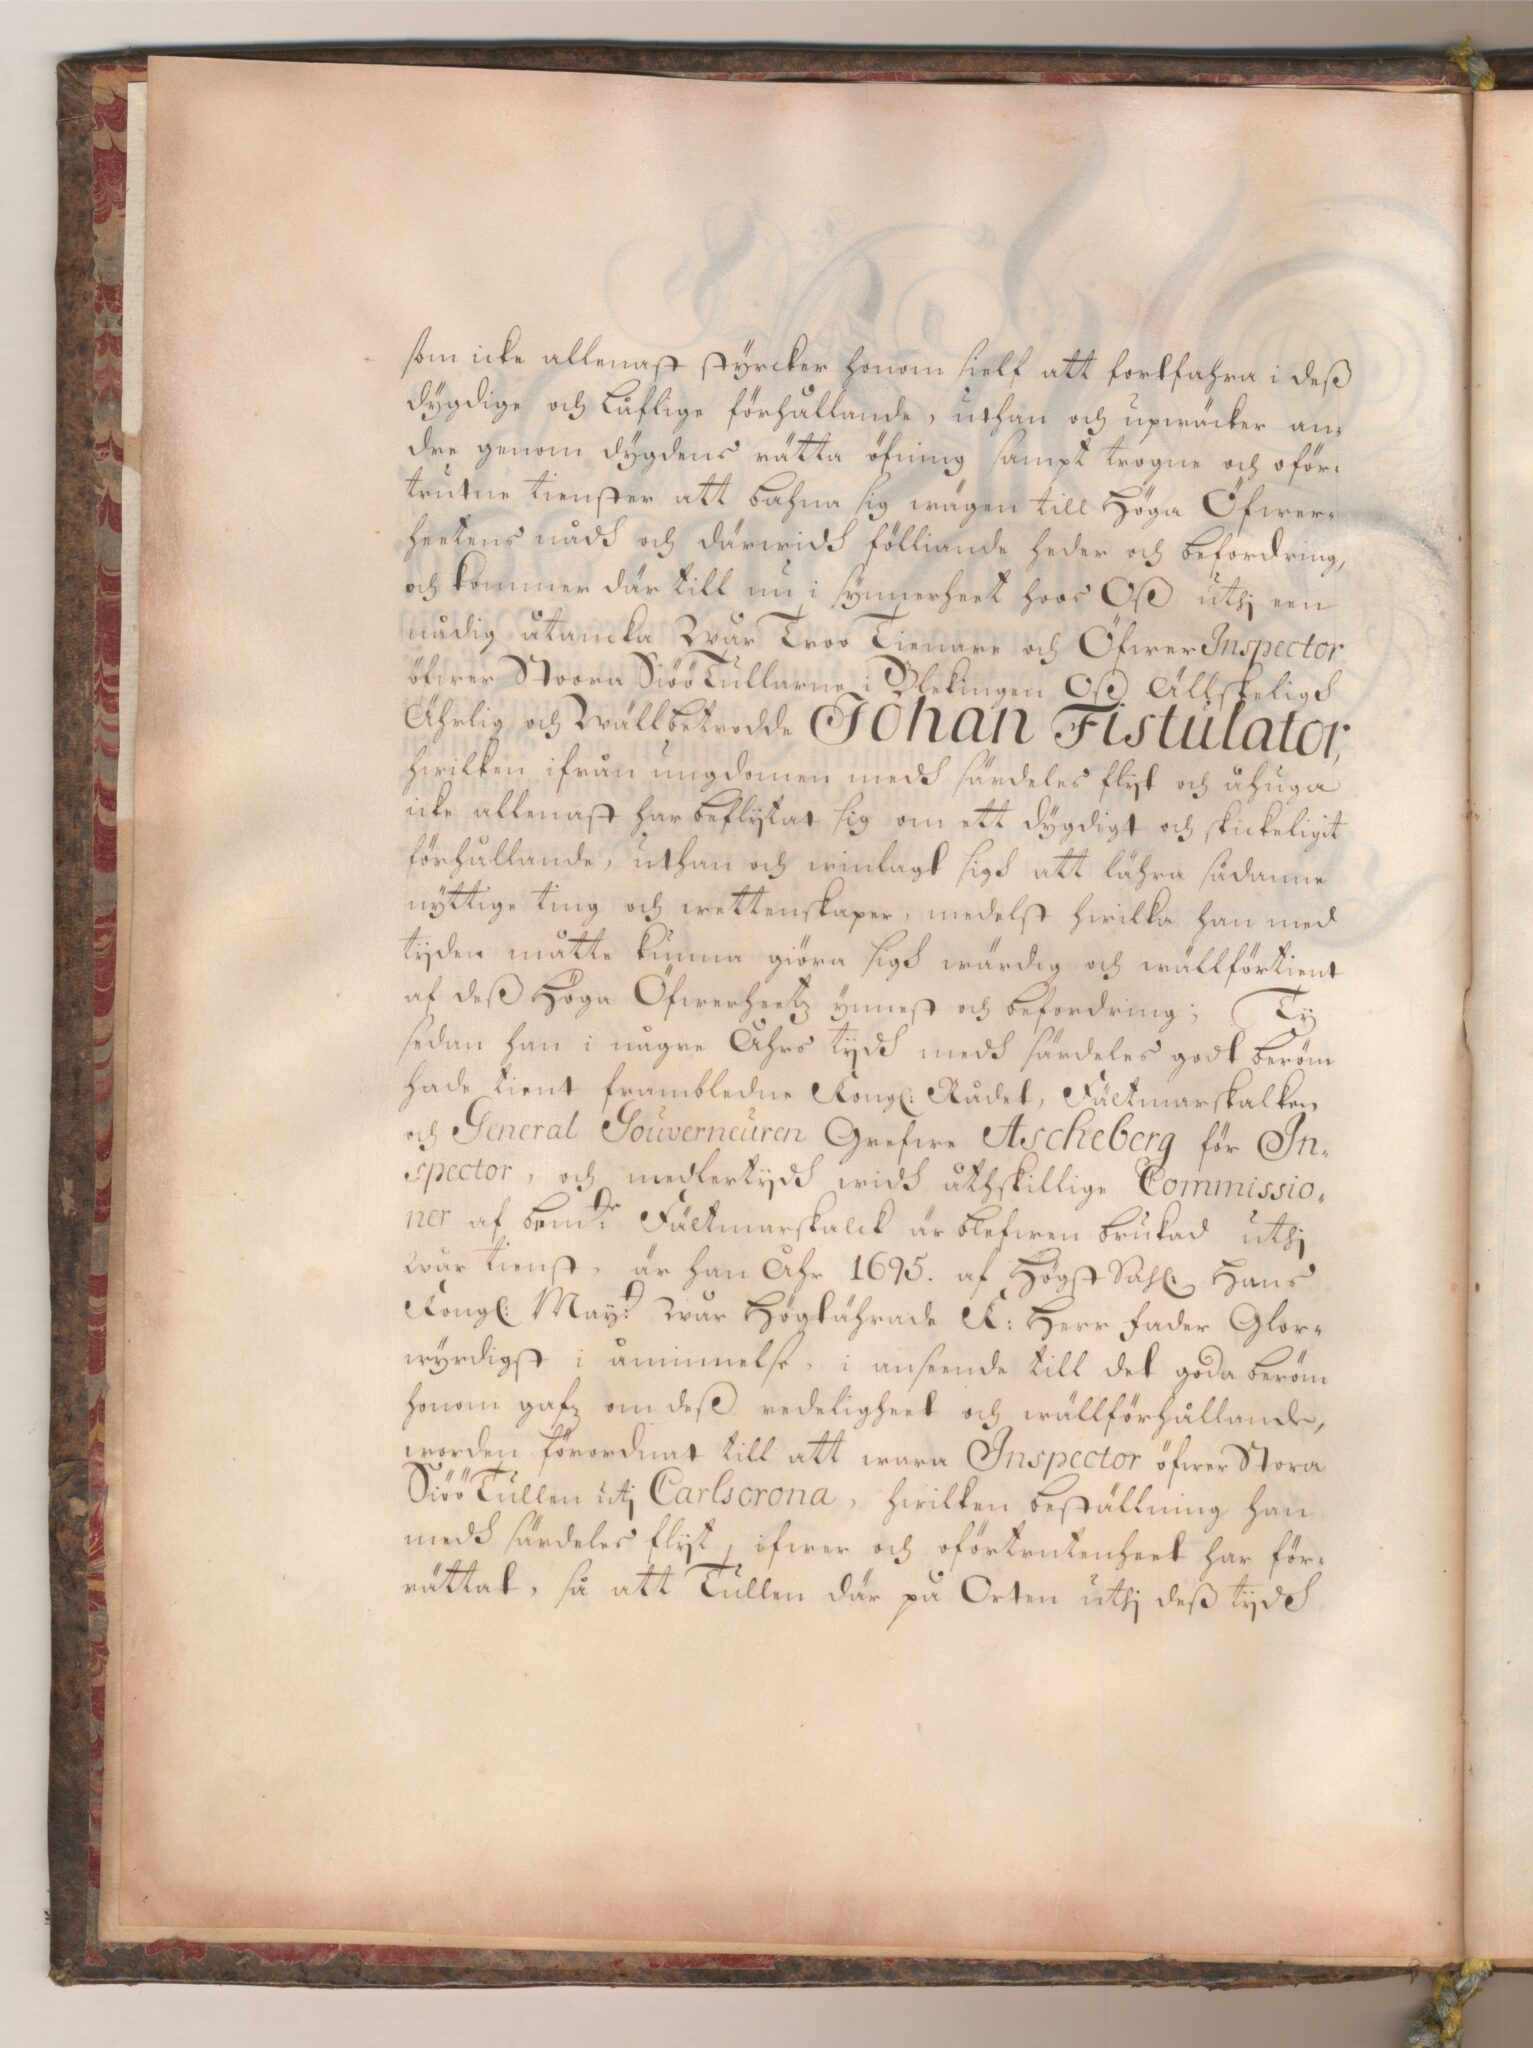 som icke allenast styrcker honom sielf att fortfahra i deß
dygdige och låflige förhållande, uthan och upwäcker an-
dre genom dygdens rätta öfning sampt trogne och oför-
trutne tienster att bahna sig wägen till Höga Öfwer-
heetens nådh och därwidh fölliande heder och befordring,
och kommer där till nu i synnerheet hoos Oß uthj een
nådig åtancka Wår Troo Tienare och ÖfwerInspector
öfwer Stoora SiööTullarne i Blekingen Oß Älskeligh
Ährlig och Wällbetrodde Johan Fistulator,
hwilken ifrån ungdomen medh särdeles flijt och åhuga
icke allenast har beflijtat sig om ett dygdigt och skickeligit
förhållande, uthan och winlagt sigh att lähra sådanne
nyttige ting och wettenskaper, medelst hwilka han med
tijden måtte kunna giöra sigh wärdig och wällförtient
af deß Höga Öfwerheetz ynnest och befordring; Ty
sedan han i någre Åhrs tijdh medh särdeles godt beröm
hade tient frambledne Kongl: Rådet, Fältmarskalken
och General Gouverneuren Grefwe Ascheberg för In-
spector, och medlertijdh widh åthskillige Commissio-
ner af bemte: Fältmarskalck är blefwen brukad uthj
wår tienst, är han Åhr 1695. af Högst Sahl. Hans
Kongl: Mayt: Wår Högtährade K: Herr Fader Glor-
wyrdigst i åminnelse, i anseende till det goda beröm
honom gafz om deß redeligheet och wällförhållande,
worden förordnat till att wara Inspector öfwer Stora
SiööTullen utj Carlscrona, hwilken beställning han
medh särdeles flijt, ifwer och oförtrutenheet har för-
rättat, så att Tullen där på Orten uthj deß tijdh